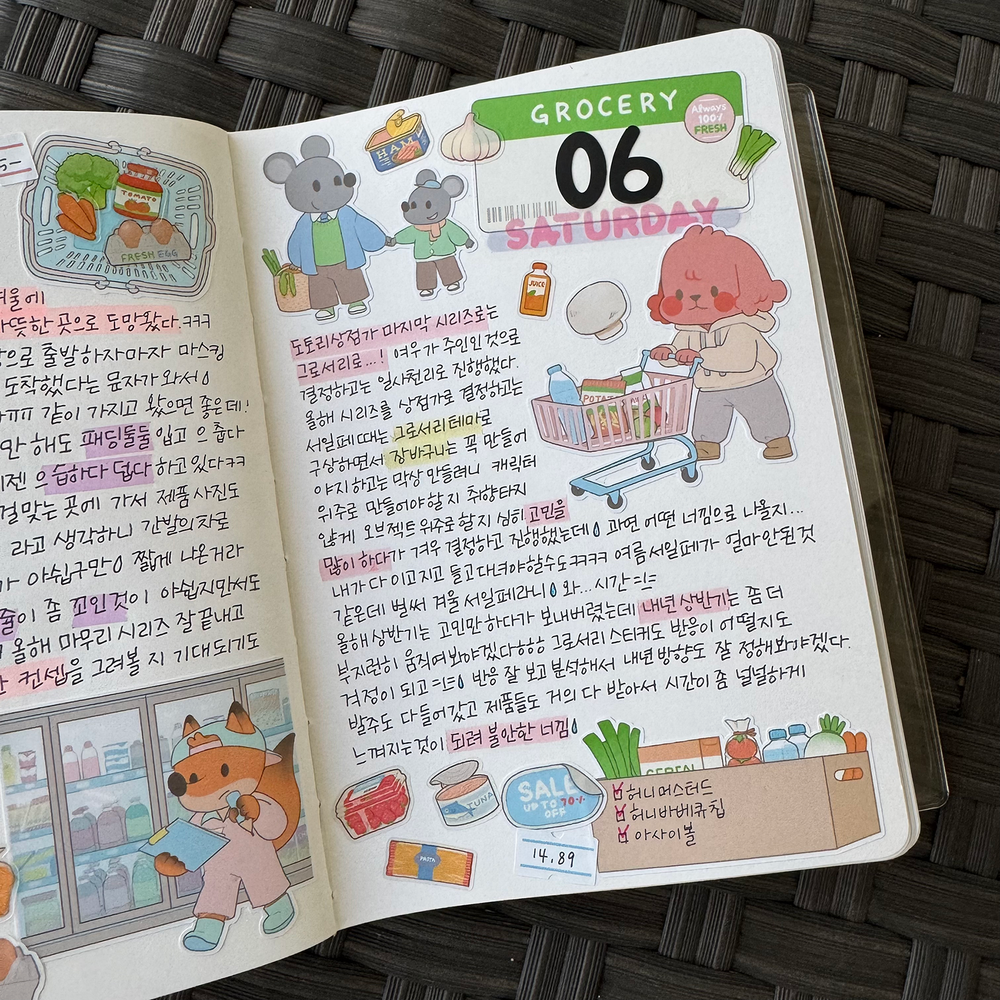 5-
TOMATO
FRESH EGG
겨울에
따뜻한 곳으로 도망왔다.ㅋㅋㅋ
으로 출발하자마자 마스킹
도착했다는 문자가 와서
ㅠㅠㅠ 같이 가지고 왔으면 좋은데!
안 해도 패딩둘둘 입고 으 춥다
이젠 으 습하다 덥다 하고 있다ㅋㅋ
걸맞는 곳에 가서 제품 사진도
라고 생각하니 간발의 차로
가 아쉽구만 짧게 나온거라
줄이 좀 꼬인 것이 아쉽지만서도
올해 마무리 시리즈 잘 끝내고
컨셉을 그려볼 지 기대되기도
HAM
GROCERY
Always
100%
FRESH
06
SATURDAY
JUICE
도토리상점가 마지막 시리즈로는
그로서리로...! 여우가 주인인 것으로
결정하고는 일사천리로 진행했다.
올해 시리즈를 상점가로 결정하고는
서일페 때는 그로서리 테마로
구상하면서 장바구니는 꼭 만들어
야지 하고는 막상 만들려니 캐릭터
위주로 만들어야 할 지 취향타지
않게 오브젝트 위주로 할 지 심히 고민을
많이 하다가 겨우 결정하고 진행했는데 과연 어떤 너낌으로 나올지...
내가 다 이고지고 들고 대녀야 할수도ㅋㅋㅋㅋ 여름 서일페가 얼마 안된 것
같은데 벌써 겨울 서일페라니 와... 시간ㅋㅋ
올해 상반기는 고민만 하다가 보내버렸는데 내년 상반기는 좀 더
부지런히 움직여 봐야겠다ㅎㅎㅎ 그로서리 스티커도 반응이 어떨지도
걱정이 되고 반응 잘 보고 분석해서 내년 방향도 잘 정해봐야겠다.
발주도 다 들어갔고 제품들도 거의 다 받아서 시간이 좀 널널하게
느껴지는 것이 되려 불안한 너낌
TUNA
SALE
UP TO 70%
OFF
PASTA
14.89
CEREAL
허니머스터드
허니바베큐칩
아사이볼